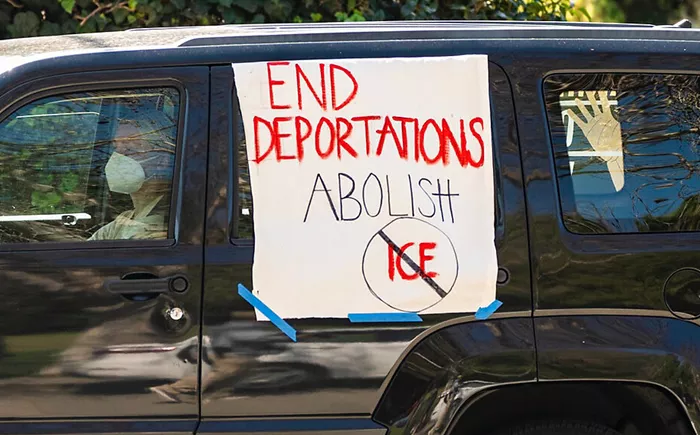 END
DEPORTATIONS
ABOLISH
ICE